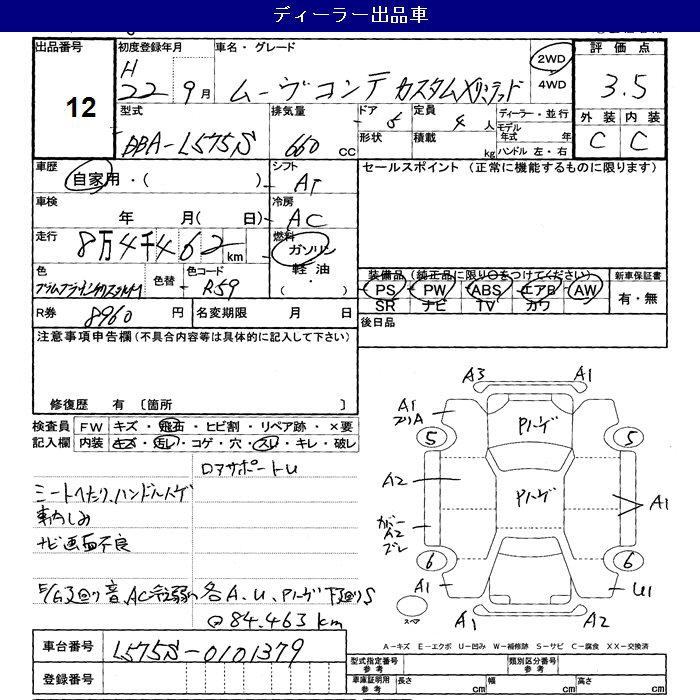 ディーラー出品車
出品番号 12
初度登録年月 H 22 9月
車名・グレード ムーヴコンテ カスタムXリミテッド
2WD
4WD
評価点 3.5
外装 C 内装 C
型式 DBA-L575S
排気量 660 CC
ドア 5
形状
定員 4人
積載 kg
ディーラー・並行
モデル年式 年
ハンドル 左・右
車歴 自家用・( )
シフト AT
セールスポイント (正常に機能するものに限ります)
車検 年 月( 日)
冷房 AC
走行 8万4千462km
燃料 ガソリン
軽油
( ・ )
色
色替
色コード R59
装備品(純正品に限り○をつけてください)
PS PW ABS エアB AW
SR ナビ TV カワ
新車保証書
有・無
R券 8960円
名変期限 月 日
後日品
注意事項申告欄(不具合内容等は具体的に記入して下さい)
修復歴 有 〔箇所 〕
検査員 FW キズ・飛石・ヒビ割・リペア跡・×要
記入欄 内装 キズ・汚レ・コゲ・穴・スレ・キレ・破レ
ロアサポートU
シートヘたり、ハンドルハゲ
車内しみ
ナビ画面不良
E/G下廻り音、AC冷え弱い 各A.U.Pハゲ下廻りS
@84.463km
A3 A1
A1
Pハーゲ
5 5
A2
Pハーゲ
A1
カバー
A2
ズレ
6 6
A1 U1
スペア
A1 A2
A-キズ E-エクボ U-凹み W-補修跡 S-サビ C-腐食 XX-交換済
車台番号 L575S-0101379
登録番号
型式指定番号 参考
類別区分番号 参考
車庫証明用 参考
長さ cm 幅 cm 高さ cm